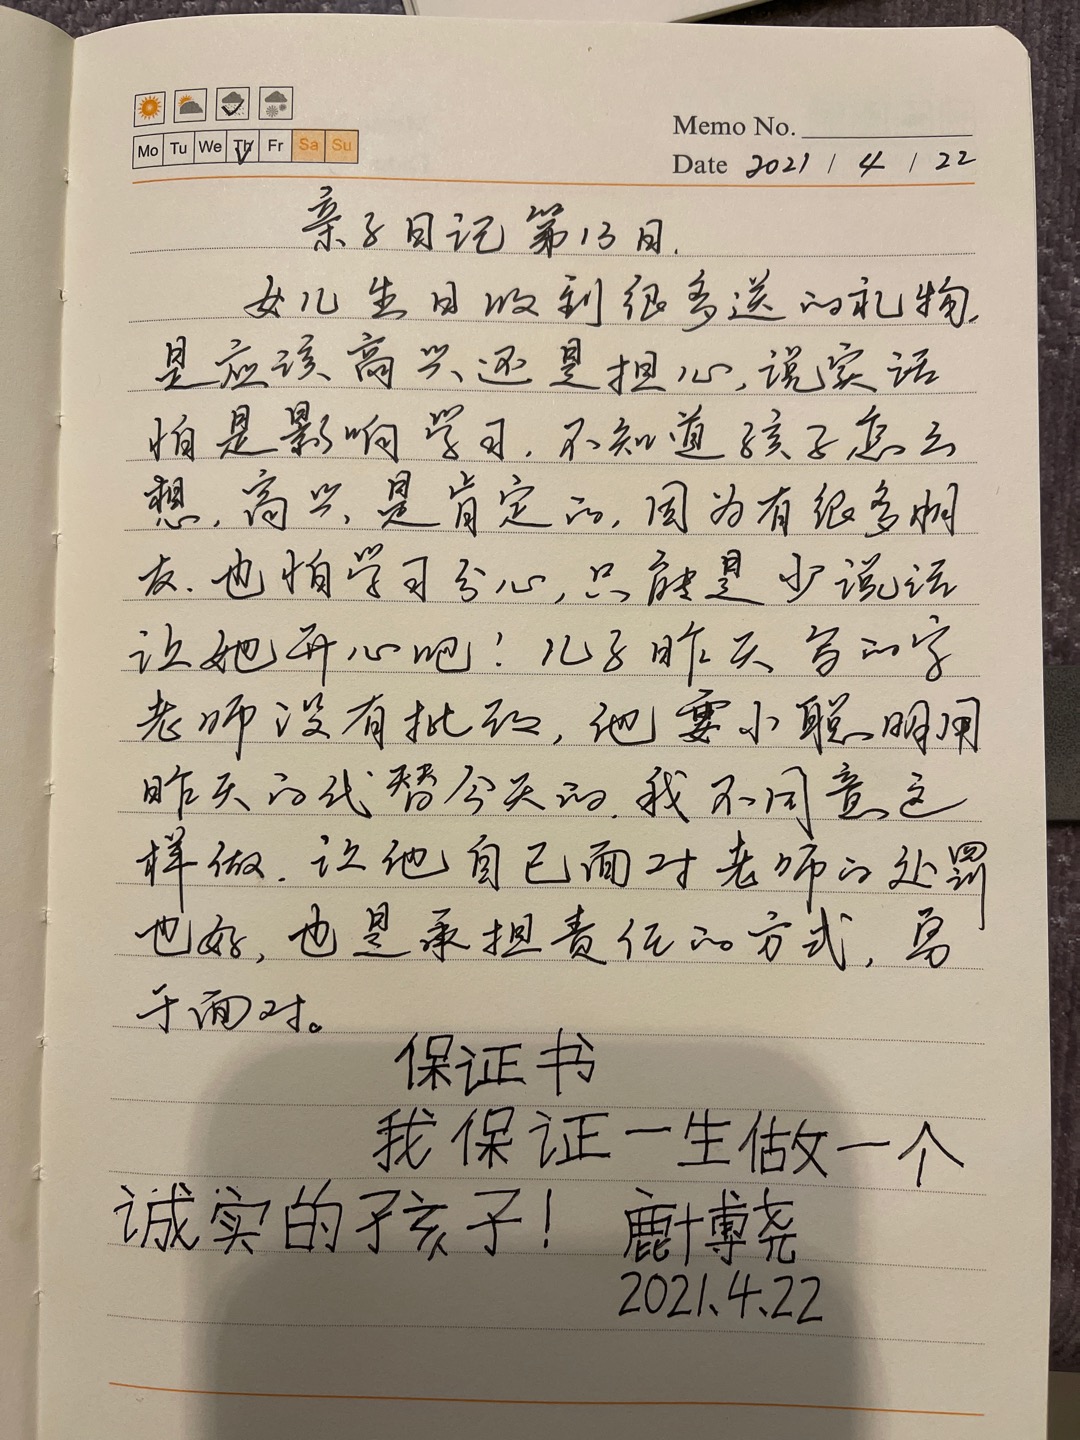 Mo Tu We Th Fr Sa Su
Memo No.
Date 2021 / 4 / 22
亲子日记第13日.
女儿生日收到很多送的礼物,
是应该高兴还是担心,说实话
怕是影响学习.不知道孩子怎么
想,高兴是肯定的,因为有很多朋
友.也怕学习分心,只能是少说话
让她开心吧!儿子昨天写的字
老师没有批改,他耍小聪明用
昨天的代替今天的.我不同意这
样做.让他自己面对老师的处罚
也好,也是承担责任的方式,勇
于面对。
保证书
我保证一生做一个
诚实的孩子!鹿博尧
2021.4.22